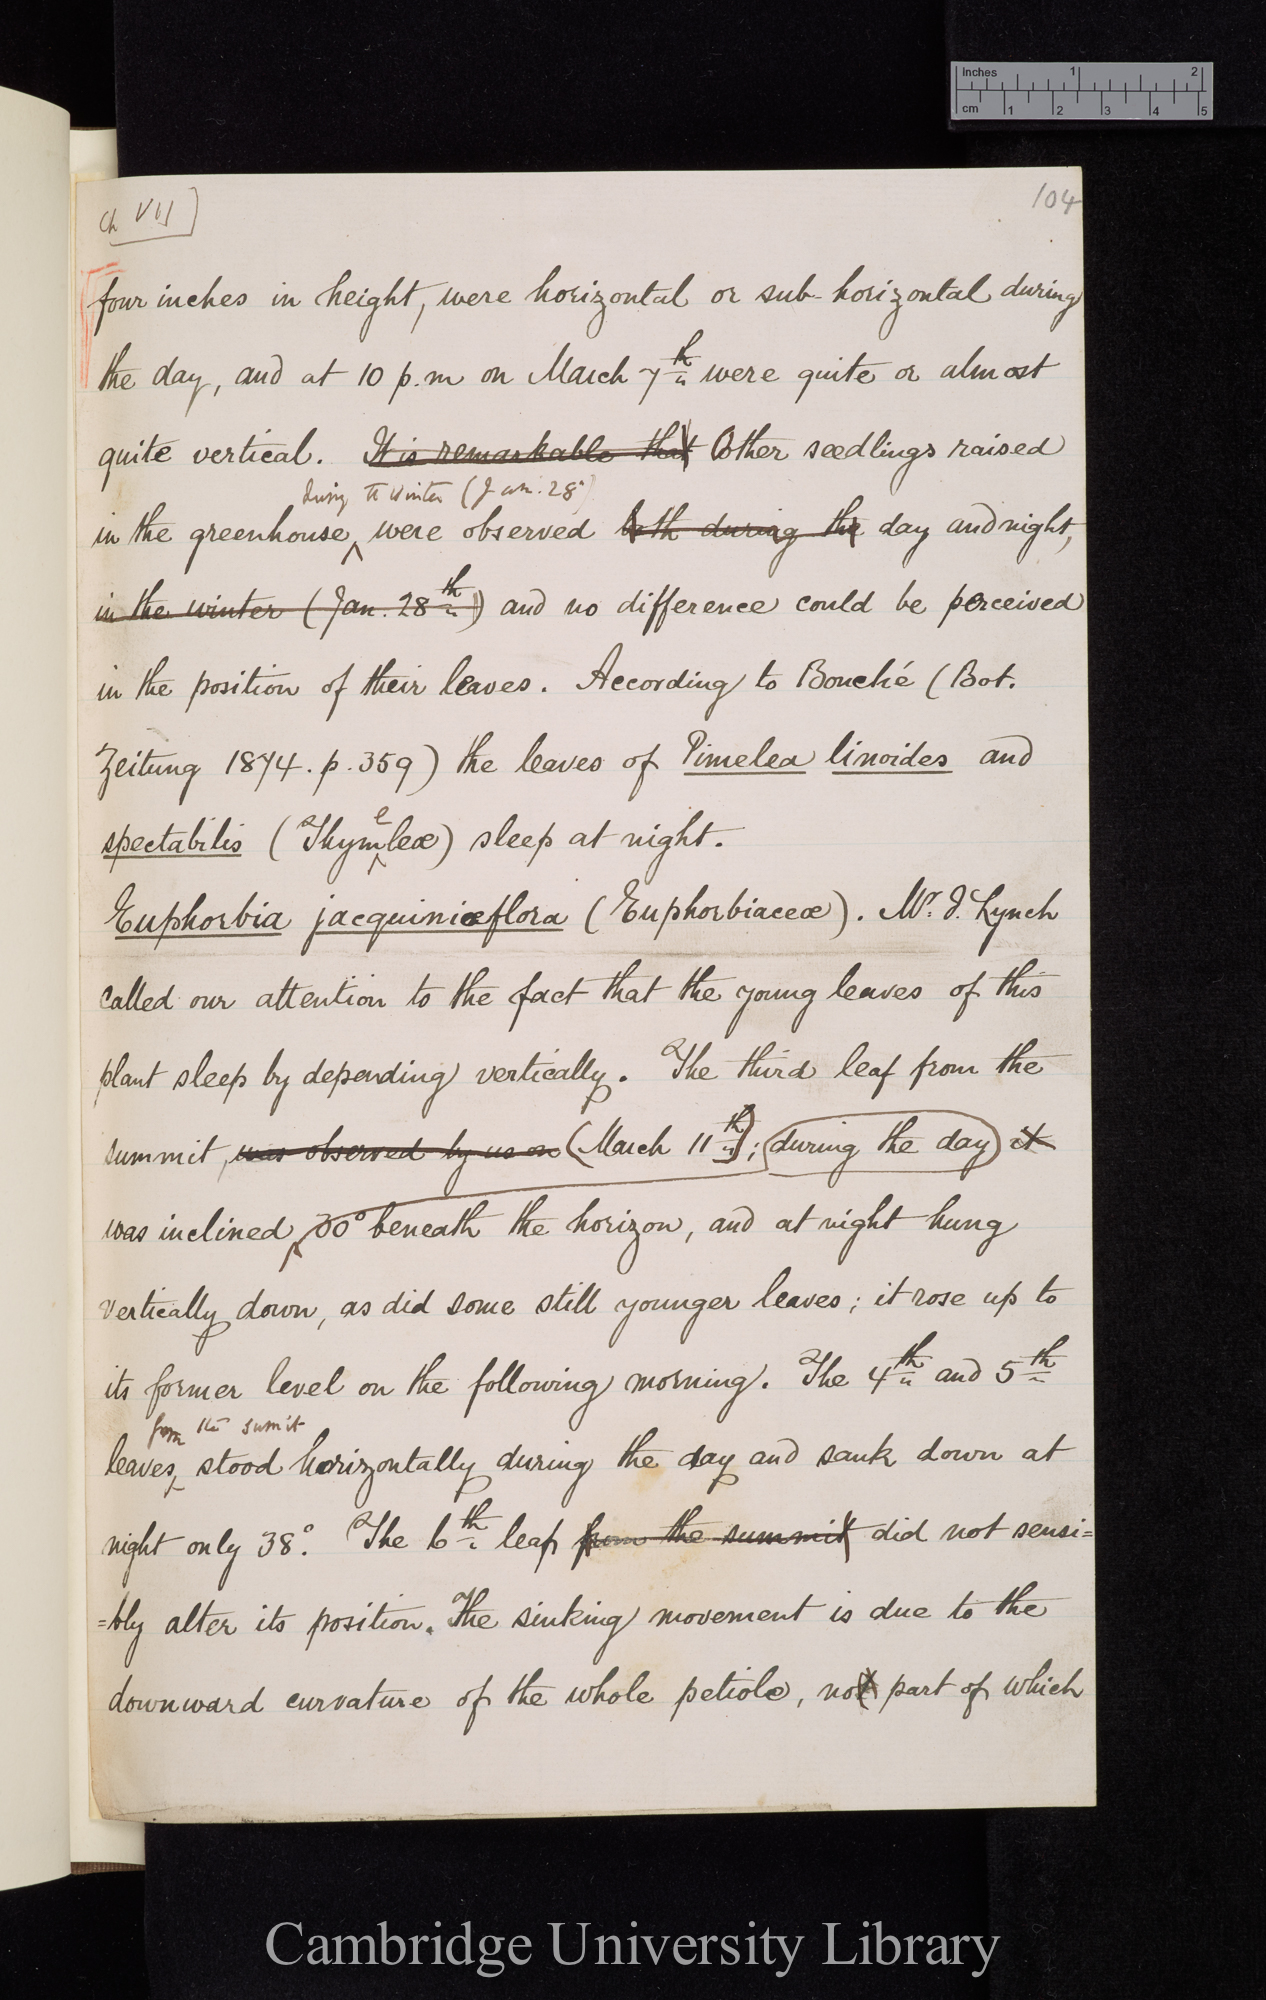 Inches 1 2
cm 1 2 3 4 5
Ch VII]
104
four inches in height, were horizontal or sub-horizontal during
the day, and at 10 p.m on March 7th were quite or almost
quite vertical. It is remarkable that Other seedlings raised
during the winter (Jan. 28th)
in the greenhouse, were observed both during the day and night,
in the winter (Jan. 28th) and no difference could be perceived
in the position of their leaves. According to Bouché (Bot.
Zeitung 1874. p. 359) the leaves of Pimelea linoides and
spectabilis (Thymeleæ) sleep at night.
Euphorbia jacquiniæflora (Euphorbiaceæ). Mr. I. Lynch
called our attention to the fact that the young leaves of this
plant sleep by depending vertically. The third leaf from the
summit, was observed by us on (March 11th); during the day it
was inclined 30° beneath the horizon, and at night hung
vertically down, as did some still younger leaves; it rose up to
its former level on the following morning. The 4th and 5th
from the summit
leaves, stood horizontally during the day and sank down at
night only 38°. The 6th leaf from the summit did not sensi=
=bly alter its position. The sinking movement is due to the
downward curvature of the whole petiole, not part of which
Cambridge University Library